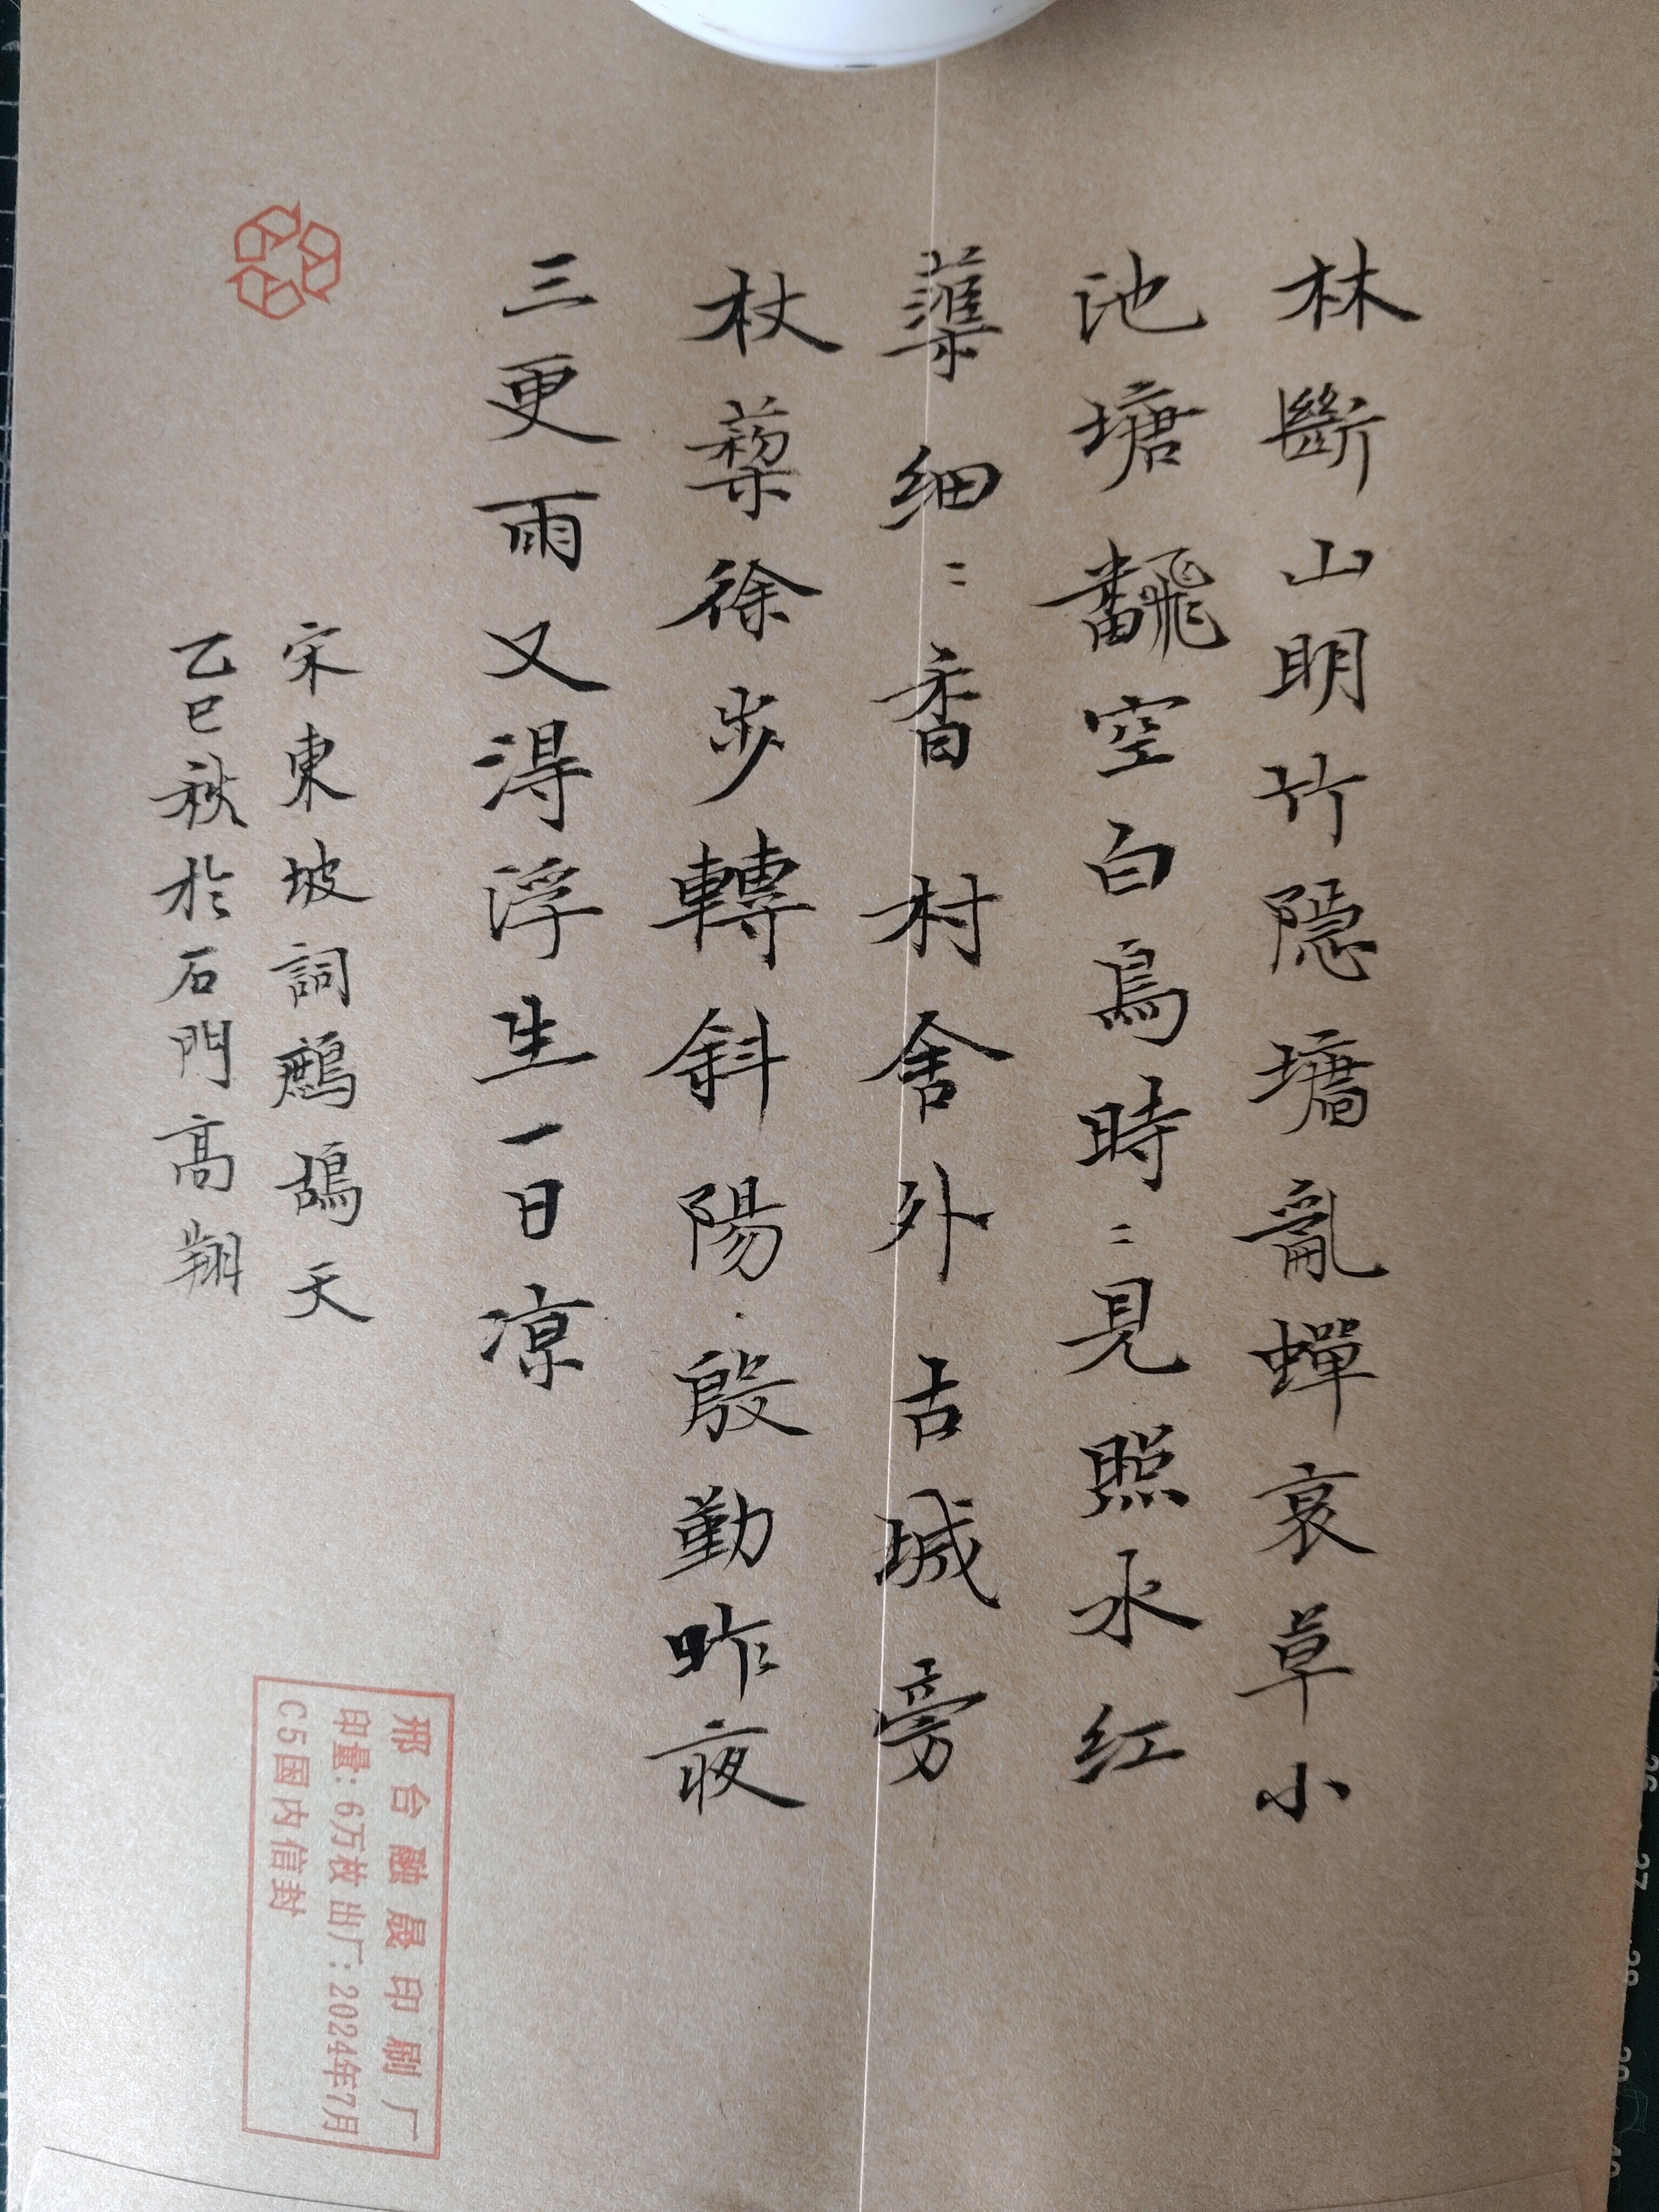 林斷山明竹隱墻亂蟬衰草小
池塘飜空白鳥時〻見照水红
蕖细〻香村舍外古城旁
杖藜徐步轉斜陽殷勤昨夜
三更雨又得浮生一日凉
宋東坡詞鷓鴣天
乙巳秋於石門高翔
邢台融晟印刷厂
印量：6万枚 出厂：2024年7月
C5国内信封